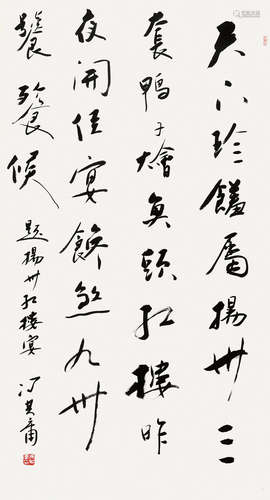 天下珍馐属扬州三
套鸭子烩鱼头红楼昨
夜开佳宴馋煞九州
饕餮候 题扬州红楼宴 冯其庸